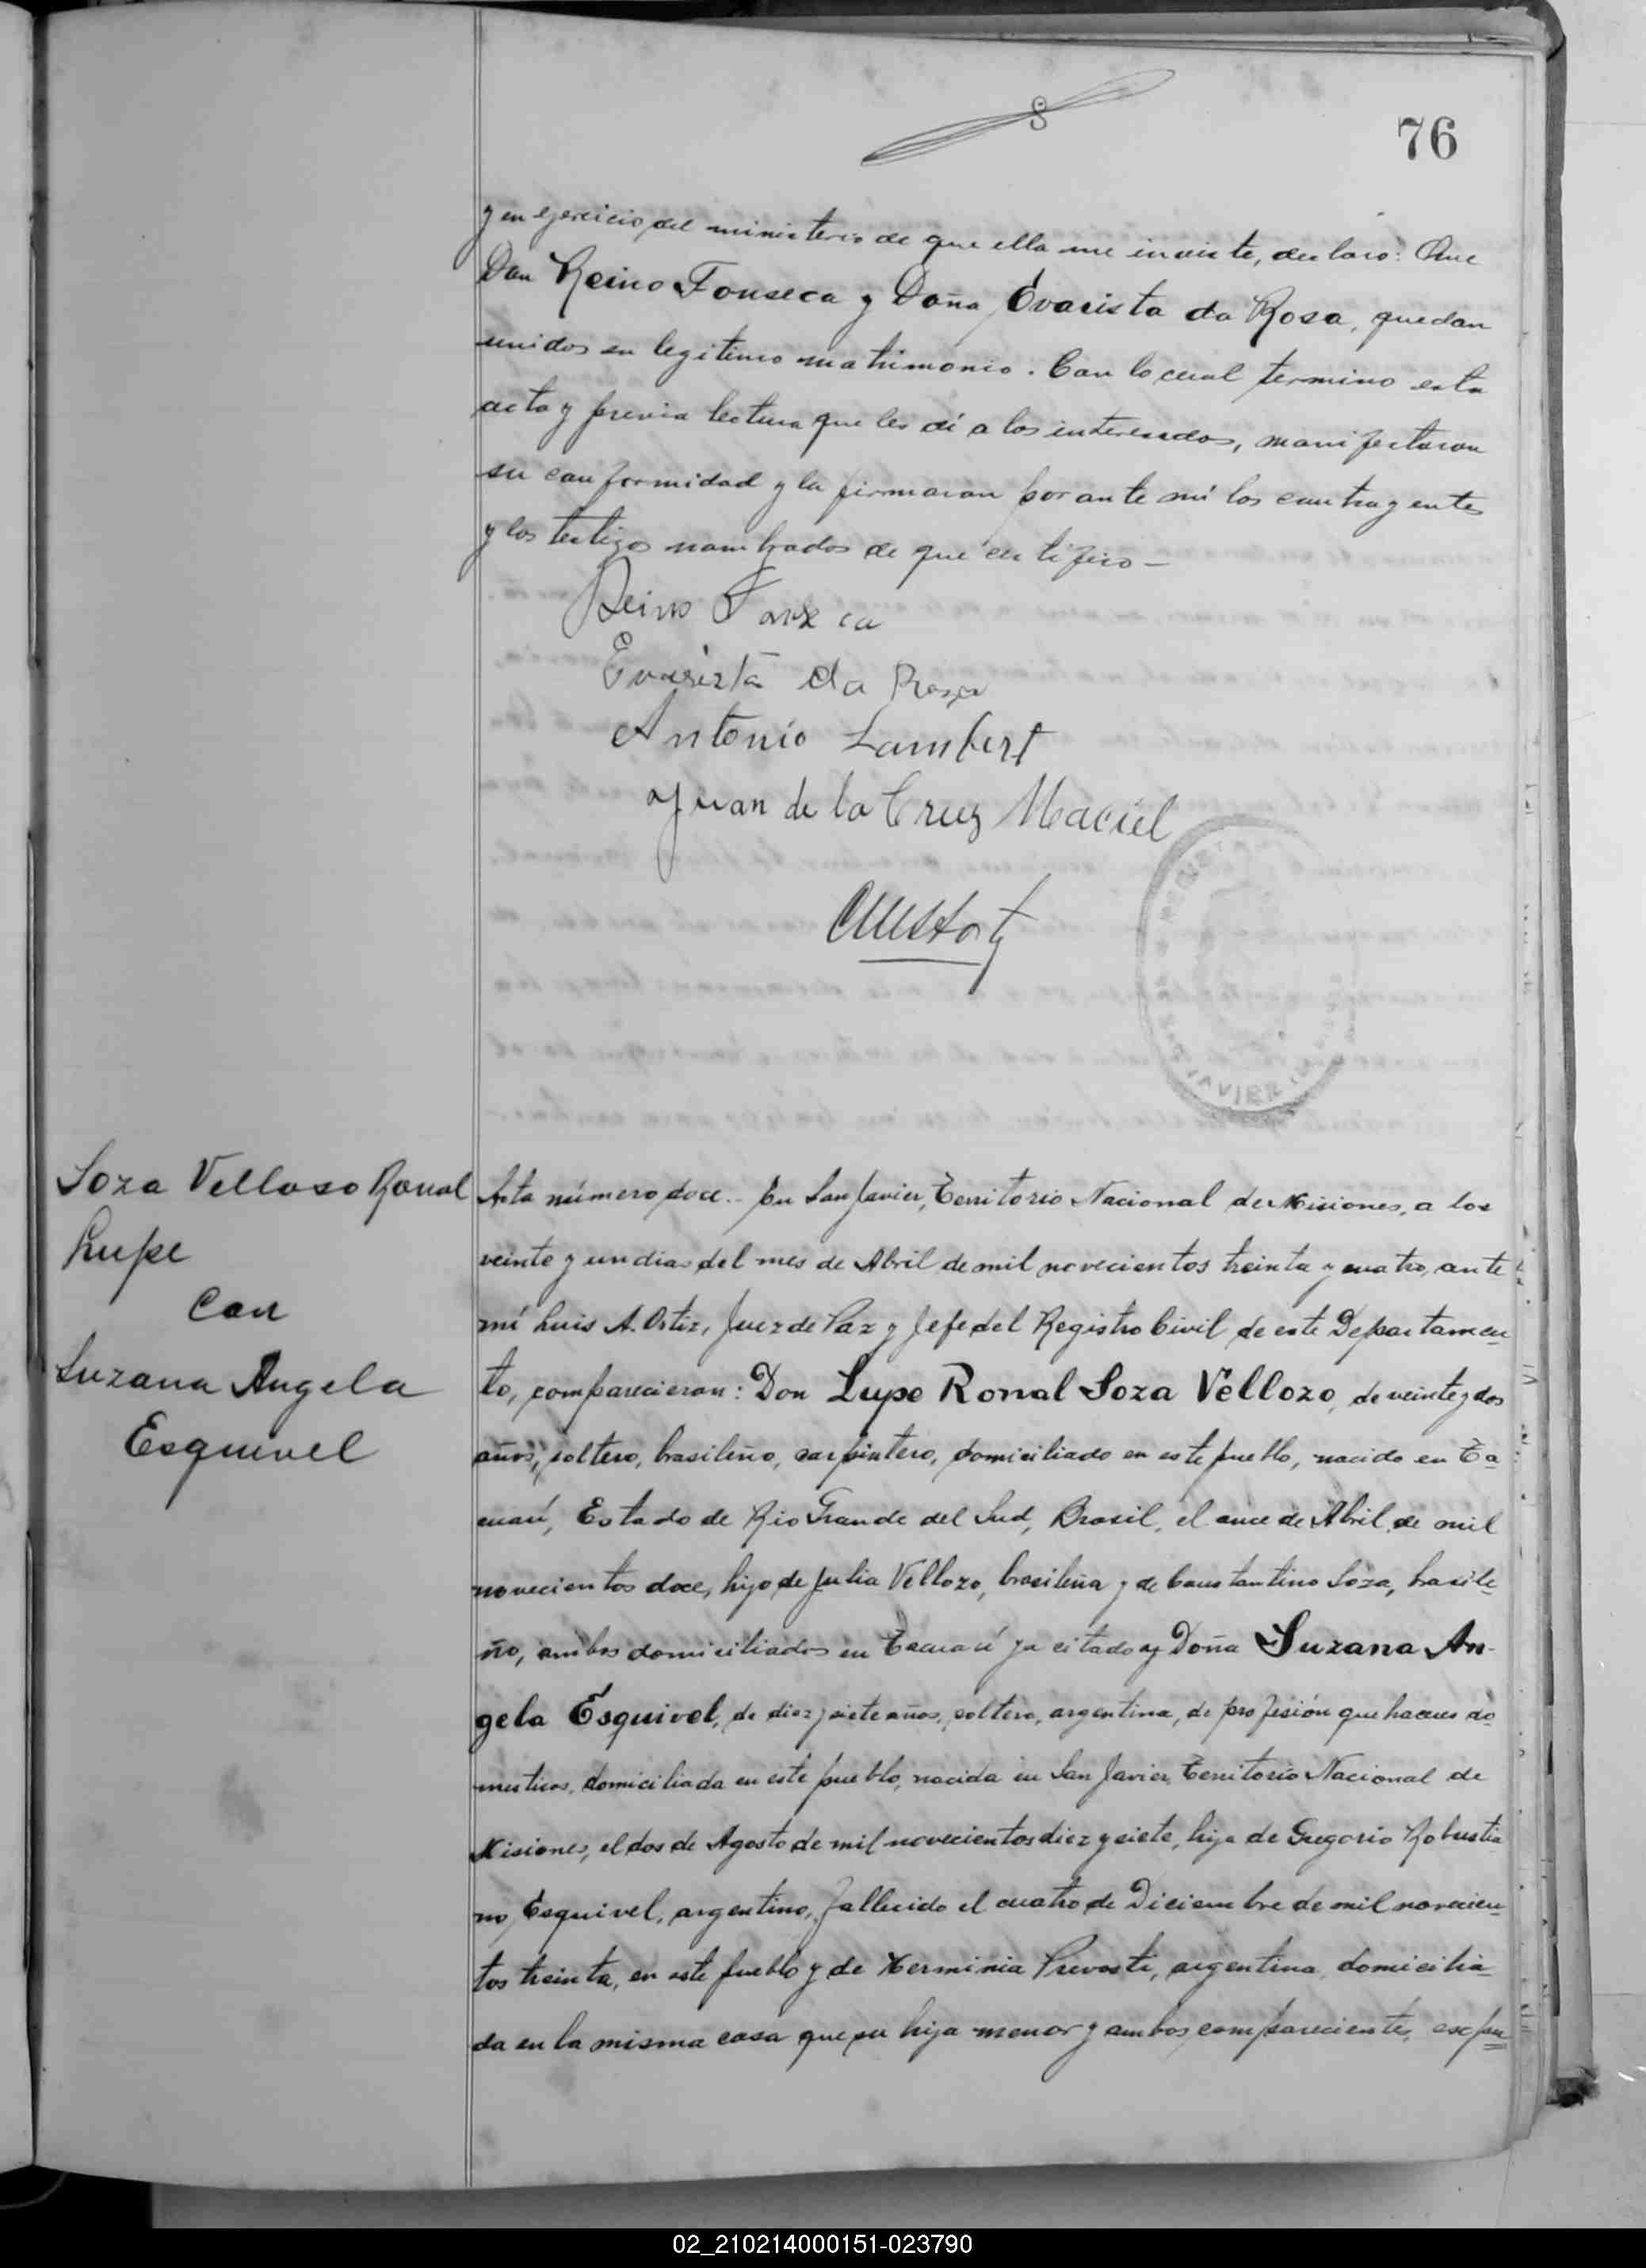 8
76
y en ejercicio del ministerio de que ella me inviste, declaro: Que
Don Reino Fonseca y Doña Evarista da Rosa, quedan
unidos en legitimo matrimonio. Con lo cual termino esta
acta y previa lectura que les dí a los interesados, manifestaron
su conformidad y la firmaron por ante mí los contrayentes
y los testigos nombrados de que certifico —
Reino Fonseca
Evarista da Rosa
Antonio Lambert
Juan de la Cruz Maciel
JAVIER
Soza Vellozo Ronal
Lupe
Con
Suzana Angela
Esquivel
Acta número doce.. En San Javier, Territorio Nacional de Misiones, a los
veinte y un dias del mes de Abril de mil novecientos treinta y cuatro, ante
mí Luis A. Ortiz, Juez de Paz y Jefe del Registro Civil de este Departamen
to, comparecieron: Don Lupe Ronal Soza Vellozo, de veinte y dos
años, soltero, brasileño, carpintero, domiciliado en este pueblo, nacido en Ta
cuarí, Estado de Rio Grande del Sud, Brasil, el once de Abril de mil
novecientos doce, hijo de Julia Vellozo, brasileña y de Constantino Soza, brasile
ño, ambos domiciliados en Tacuarí ya citado y Doña Suzana An-
gela Esquivel, de diez y siete años, soltera, argentina, de profesión quehaceres do
mesticos, domiciliada en este pueblo, nacida en San Javier, Territorio Nacional de
Misiones, el dos de Agosto de mil novecientos diez y siete, hija de Gregorio Robustia
no Esquivel, argentino, fallecido el cuatro de Diciembre de mil novecien
tos treinta, en este pueblo y de Herminia Prevosti, argentina, domicilia
da en la misma casa que su hija menor y ambos comparecientes, expu
02_210214000151-023790